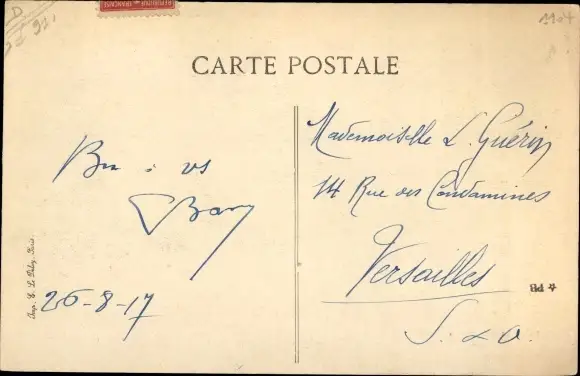 REPUBLIQUE FRANÇAISE
1104
CARTE POSTALE
Mademoiselle L. Guérin
14 Rue des Condamines
Versailles
S. & O.
PB
Bn à vs
26-8-17
Imp. E. Le Deley, Paris